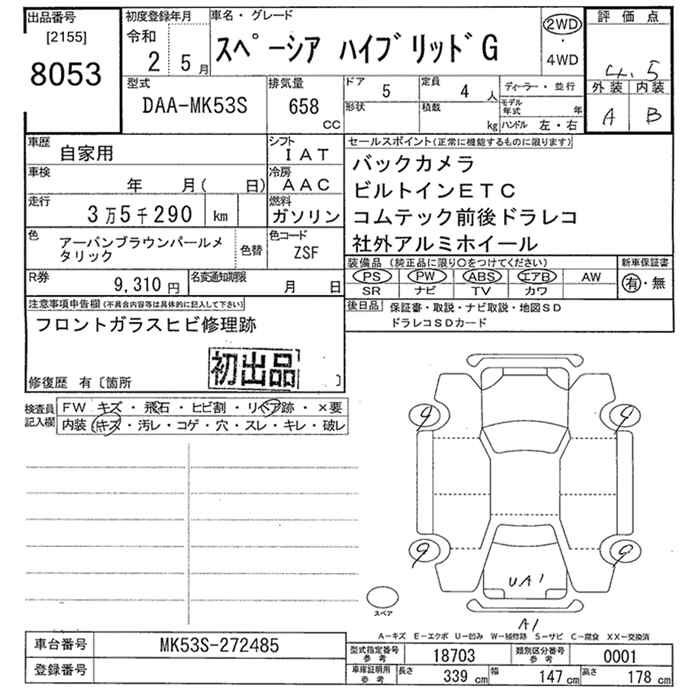 出品番号
[2155]
8053
初度登録年月
令和
2 5月
車名・グレード
スペーシア ハイブリッドG
2WD
・
4WD
評価点
4.5
外装 内装
A B
型式
DAA-MK53S
排気量
658
CC
ドア
5
定員
4 人
形状
積載
kg
ディーラー・並行
モデル年式 年
ハンドル 左・右
車歴
自家用
シフト
IAT
車検
年 月( 日)
冷房
AAC
走行
3万5千290 km
燃料
ガソリン
色
アーバンブラウンパールメ
タリック
色替
色コード
ZSF
R券
9,310 円
名変通知期限
月 日
セールスポイント(正常に機能するものに限ります)
バックカメラ
ビルトインETC
コムテック前後ドラレコ
社外アルミホイール
装備品 (純正品に限り○をつけてください)
PS PW ABS エアB AW
SR ナビ TV カワ
新車保証書
有・無
後日品
保証書・取説・ナビ取説・地図SD
ドラレコSDカード
注意事項申告欄(不具合内容等は具体的に記入して下さい)
フロントガラスヒビ修理跡
初出品
修復歴 有〔箇所 〕
検査員
記入欄
FW キズ・飛石・ヒビ割・リペア跡・×要
内装 キズ・汚レ・コゲ・穴・スレ・キレ・破レ
9 9
9 9
UA1
スペア
A1
A-キズ E-エクボ U-凹み W-補修跡 S-サビ C-腐食 XX-交換済
車台番号
MK53S-272485
登録番号
型式指定番号
参考
18703
類別区分番号
参考
0001
車庫証明用
参考
長さ
339 cm
幅
147 cm
高さ
178 cm